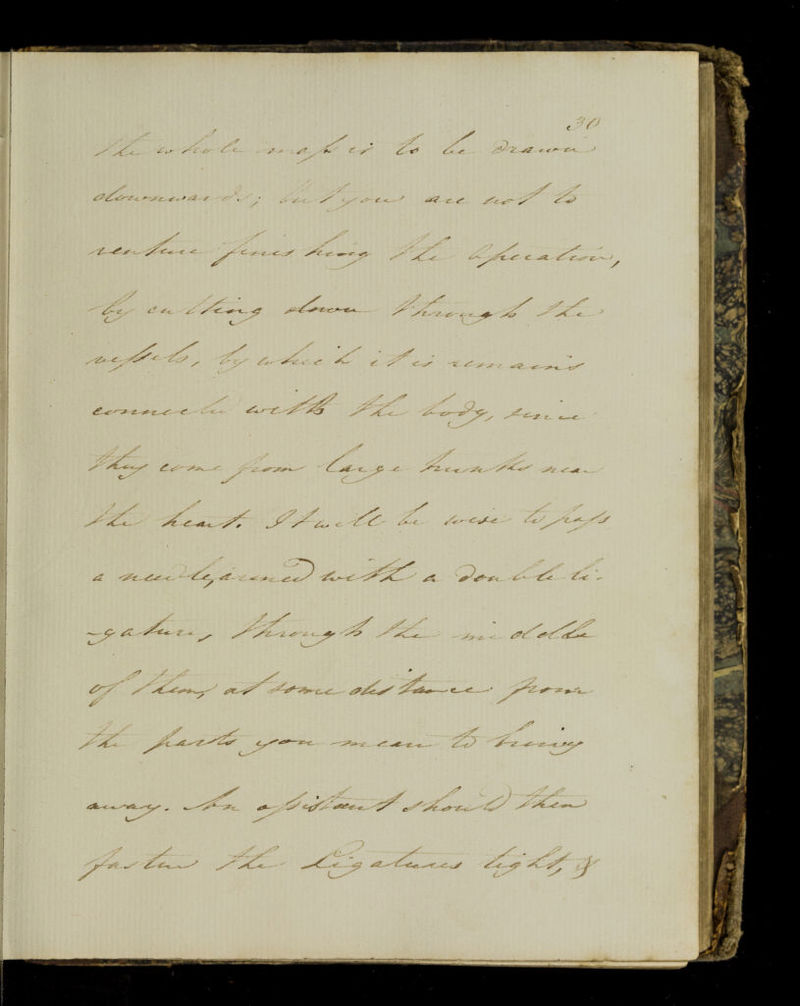 30
the whole mass is to be drawn
downwards; but you are not to
venture finishing the Operation,
by cutting down through the
vessels, by which it is remains
connected with the body, since
they come from large trunks near
the heart. It will be wise to pass
a needle, armed with a double li-
-gature, through the middle
of them, at some distance from
the parts you mean to bring
away. An assistant should then
fasten the Ligatures tight, &